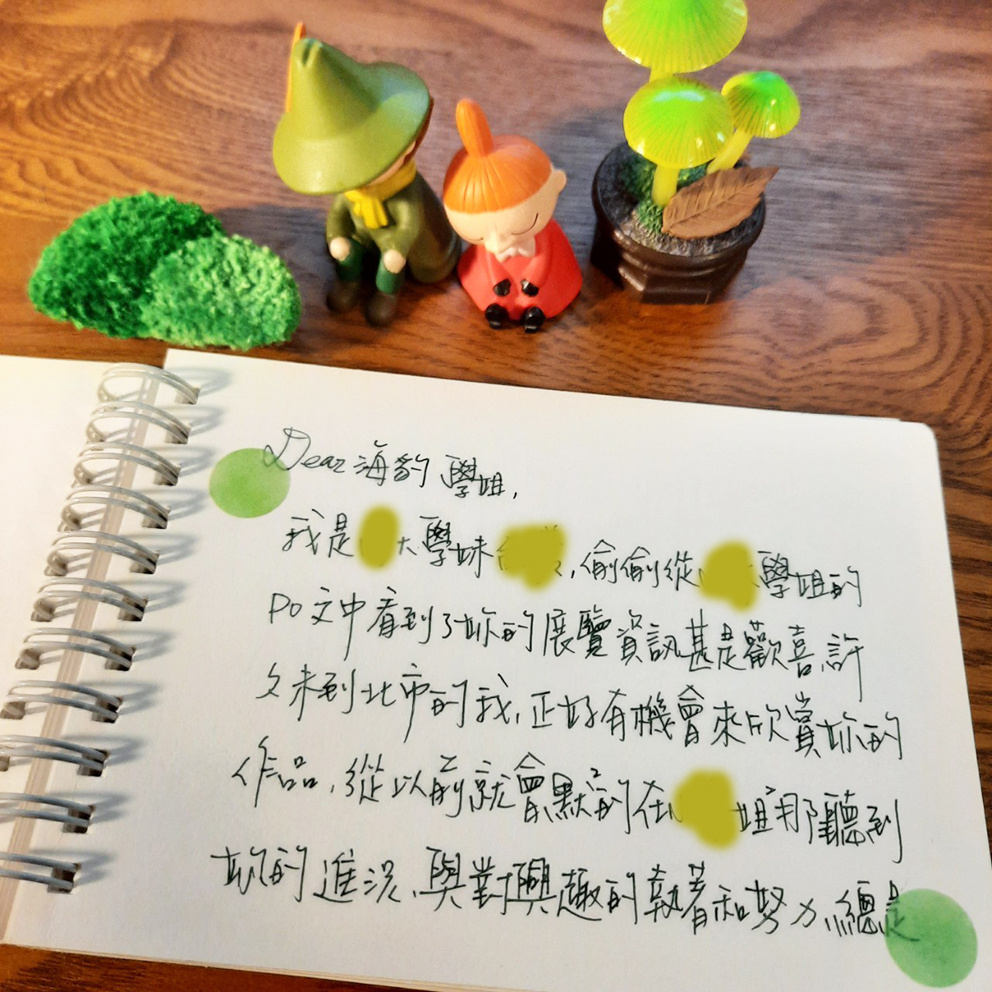 Dear 海豹學姐,
我是大學妹,偷偷從學姐的
PO文中看到了妳的展覽資訊甚是歡喜,許
久未到北市的我,正好有機會來欣賞妳的
作品,從以前就會默默的在姐那聽到
妳的進況、與對興趣的執著和努力,總是